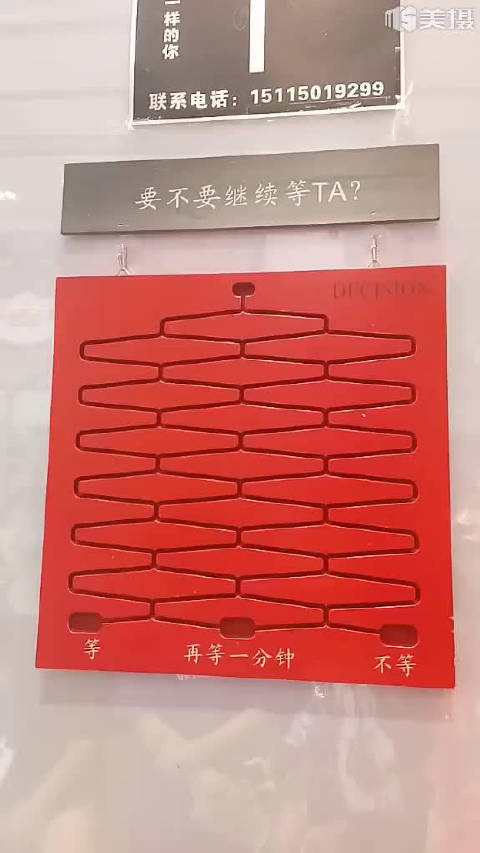 美摄
一样的你
联系电话：15115019299
要不要继续等TA？
DECISION
等
再等一分钟
不等